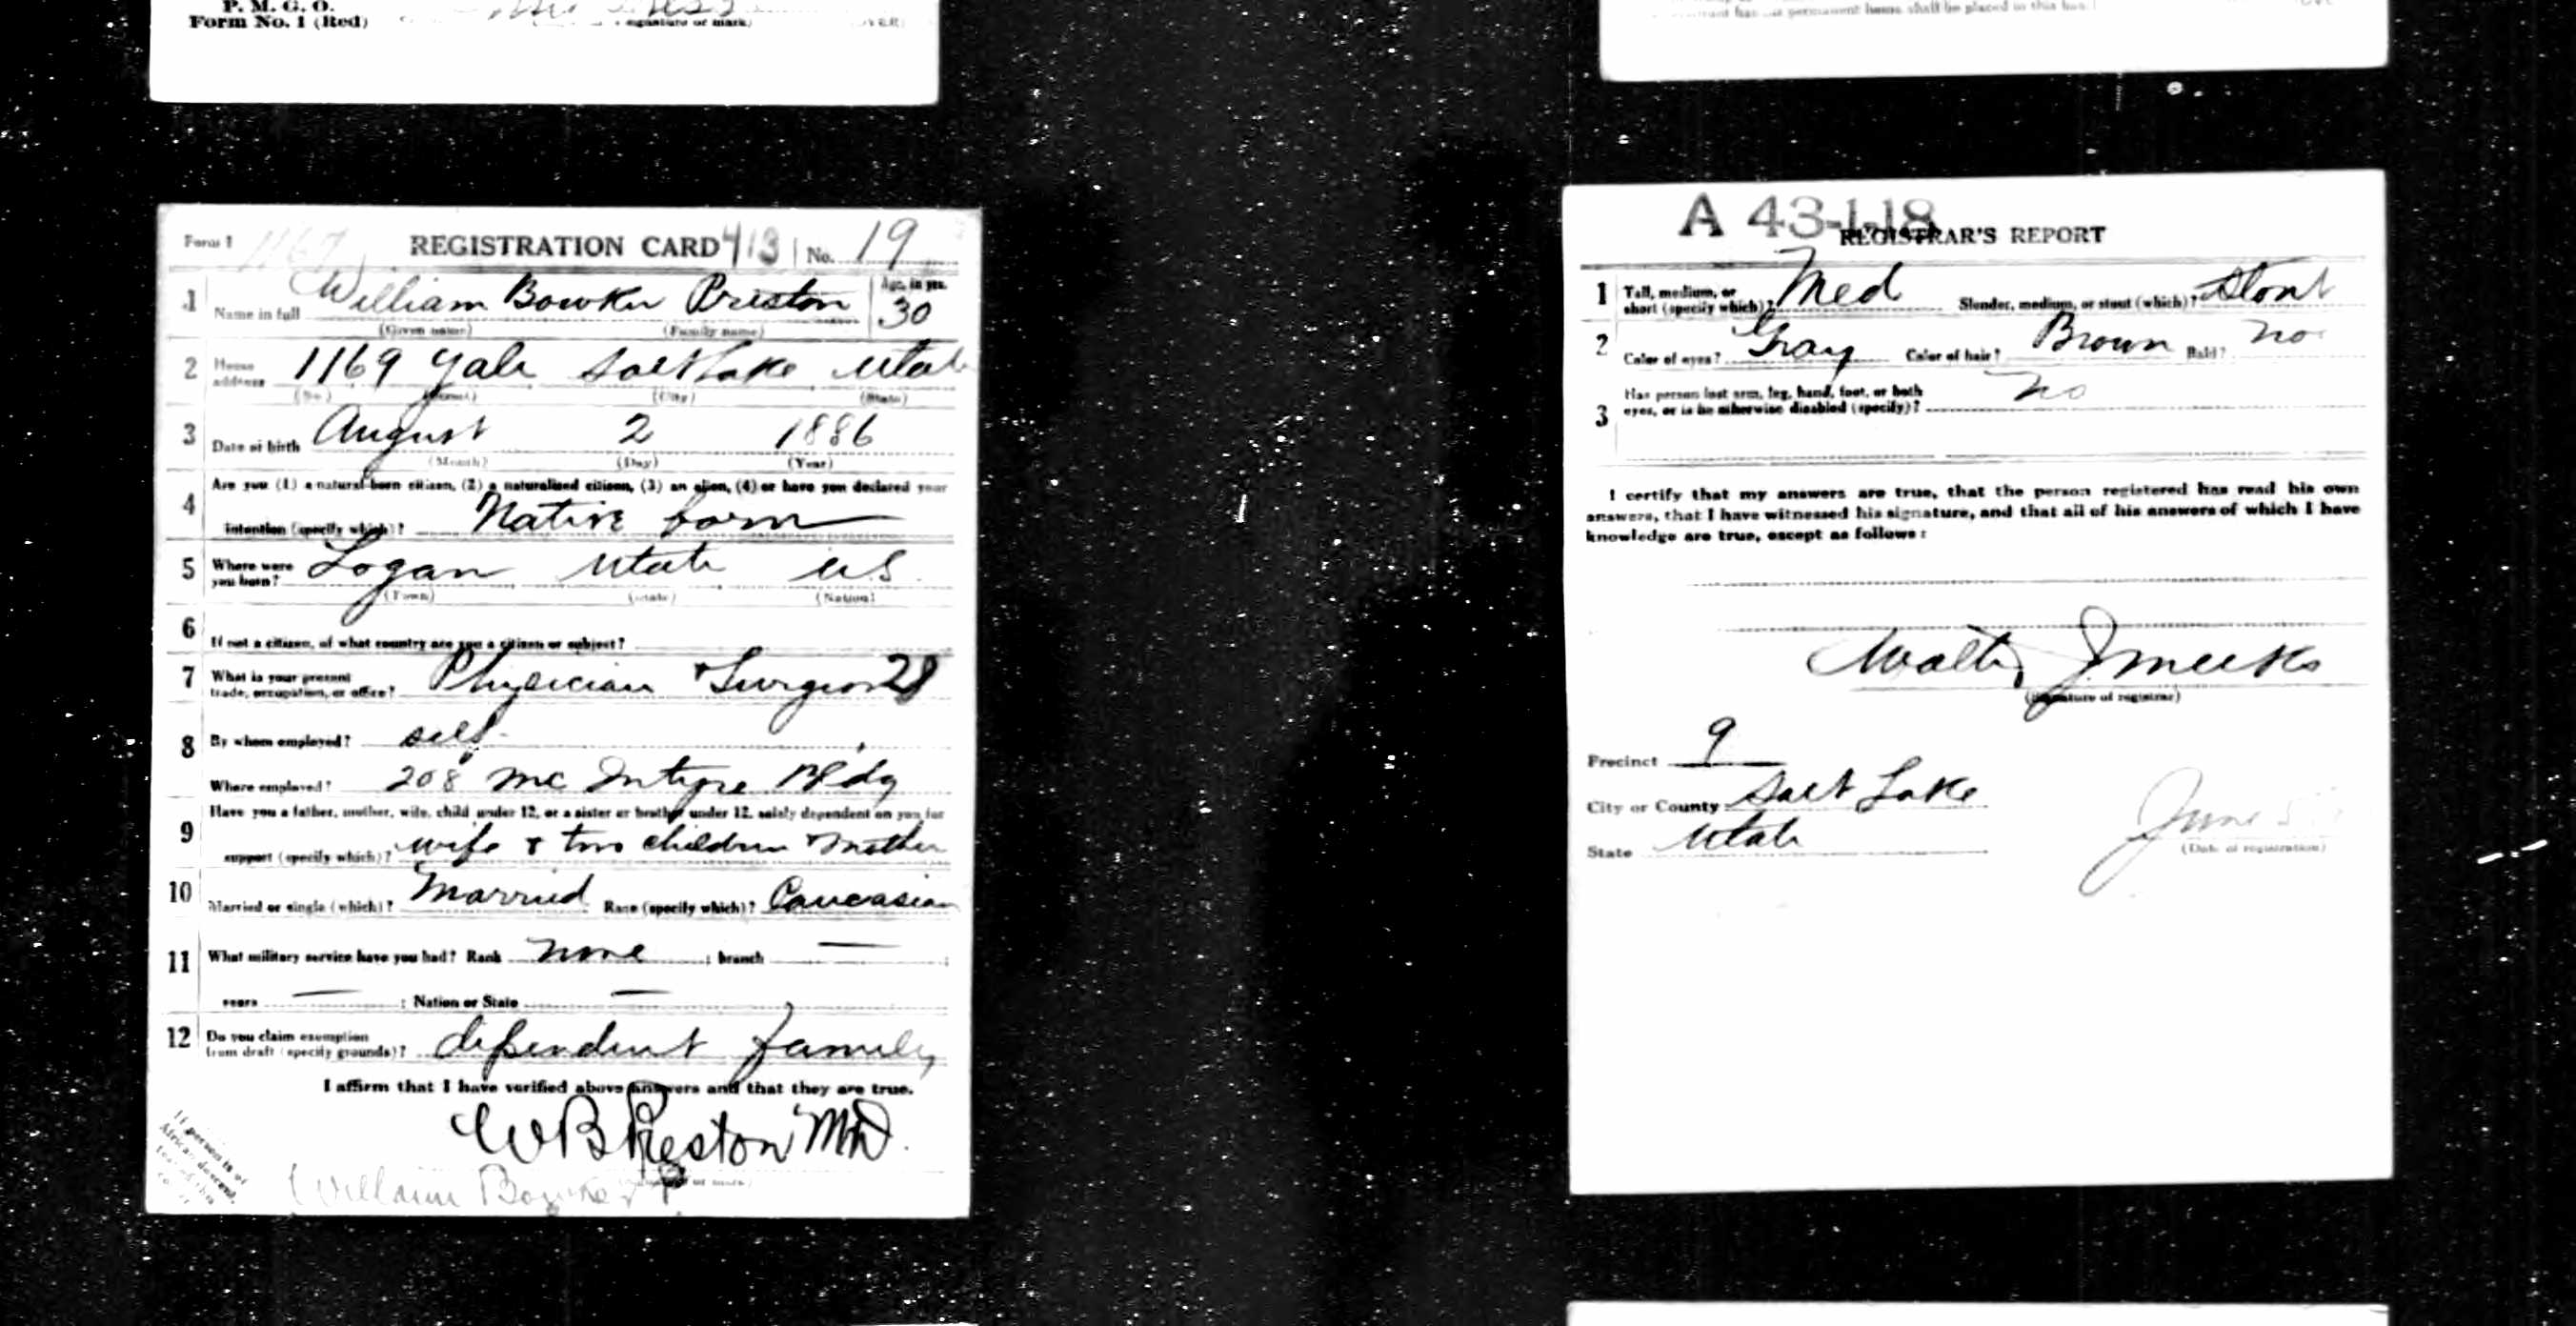 P. M. G. O.
Form No. 1 (Red)
signature or mark)
(OVER)
permanent home shall be placed in this box
Form 1 1167 REGISTRATION CARD 413 No. 19
1 Name in full William Bowker Preston Age, in yrs. 30
(Given name) (Family name)
2 Home address 1169 Yale Salt Lake Utah
(No.) (Street) (City) (State)
3 Date of birth August 2 1886
(Month) (Day) (Year)
4 Are you (1) a natural-born citizen, (2) a naturalized citizen, (3) an alien, (4) or have you declared your
intention (specify which)? Native born
5 Where were you born? Logan Utah US
(Town) (State) (Nation)
6 If not a citizen, of what country are you a citizen or subject?
7 What is your present trade, occupation, or office? Physician & Surgeon 28
8 By whom employed? self
Where employed? 208 Mc Intyre Bldg
9 Have you a father, mother, wife, child under 12, or a sister or brother under 12, solely dependent on you for
support (specify which)? wife & two children & mother
10 Married or single (which)? Married Race (specify which)? Caucasian
11 What military service have you had? Rank none ; branch —
years — ; Nation or State —
12 Do you claim exemption from draft (specify grounds)? dependent family
I affirm that I have verified above answers and that they are true.
W B Preston MD.
William Bowker P.
If person is of
African descent,
A 43-1-18
REGISTRAR'S REPORT
1 Tall, medium, or short (specify which)? Med Slender, medium, or stout (which)? Stout
2 Color of eyes? Gray Color of hair? Brown Bald? no
3 Has person lost arm, leg, hand, foot, or both
eyes, or is he otherwise disabled (specify)? no
I certify that my answers are true, that the person registered has read his own
answers, that I have witnessed his signature, and that all of his answers of which I have
knowledge are true, except as follows:
Walter J. Meeks
(Signature of registrar)
Precinct 9
City or County Salt Lake
State Utah
June 5
(Date of registration)